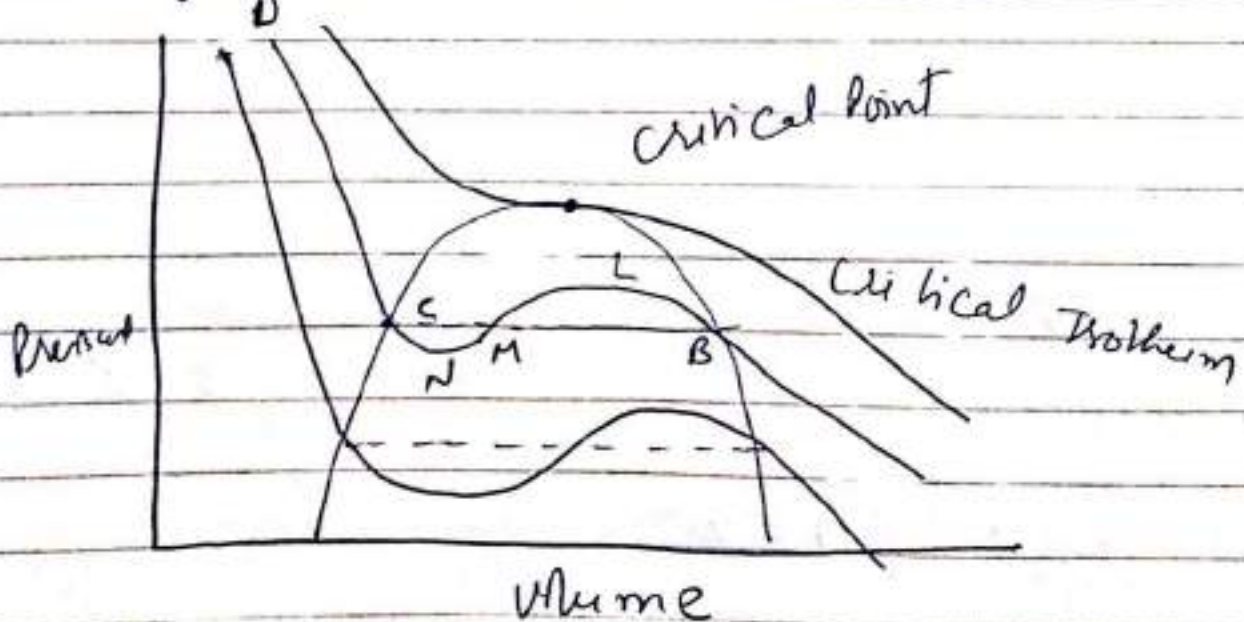 D
Critical Point
L
Critical Isotherm
C
Pressure
N M B
Volume